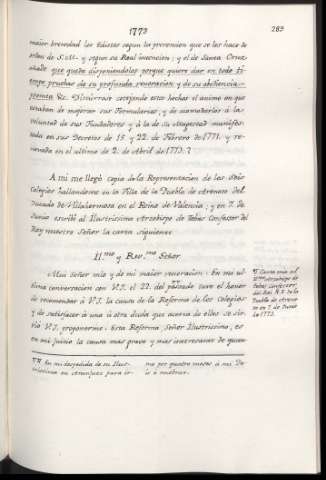 1773
283
maior brevedad los Edictos segun las prevencion que se les hace de
orden de S.M. y segun su Real intencion; y el de Santa Cruz
añade que queda disponiendoles porque quiere dar en todo ti-
empo pruebas de su profunda veneracion y de su obediencia
prompta &c. Discurrase cotejando estos hechos el animo en que
estaban de mejorar sus Formularios, y de acomodarlos a la
voluntad de sus Fundadores y á la de su Magestad manifes-
tada en sus Decretos de 15 y 22 de Febrero de 1771. y re-
novada en el ultimo de 2. de Abril de 1773.?
A mi me llegò copia de la Representacion de los Seis
Colegios hallandome en la Villa de la Puebla de Arenoso del
Ducado de Villahermosa en el Reino de Valencia; y en 7. de
Junio escribí al Ilustrissimo Arzobispo de Tebas Confesor del
Rey nuestro Señor la carta siguiente
Il.mo y Rev.mo Señor.
Mui Señor mio y de mi maior veneracion: En mi ul-
tima conversacion con V.I. el 22. del passado tuve el honor
de recomendar á V.I. la causa de la Reforma de los Colegios
y de satisfacer à una ù otra duda que acerca de ellos se sir-
viò V.I. proponerme: Esta Reforma, Señor Ilustrissimo, es
en mi juicio la causa mas grave y mas interesante de quan-
¶ Carta mia al
Ill.mo Arzobispo de
Tebas Confesor
del Rei N.S. de la
Puebla de Areno-
so en 7. de Junio
de 1773.
En mi despedida de su Ilus-
trissima en Aranjuez para ir-
me por quatro meses á mi Pa-
is á